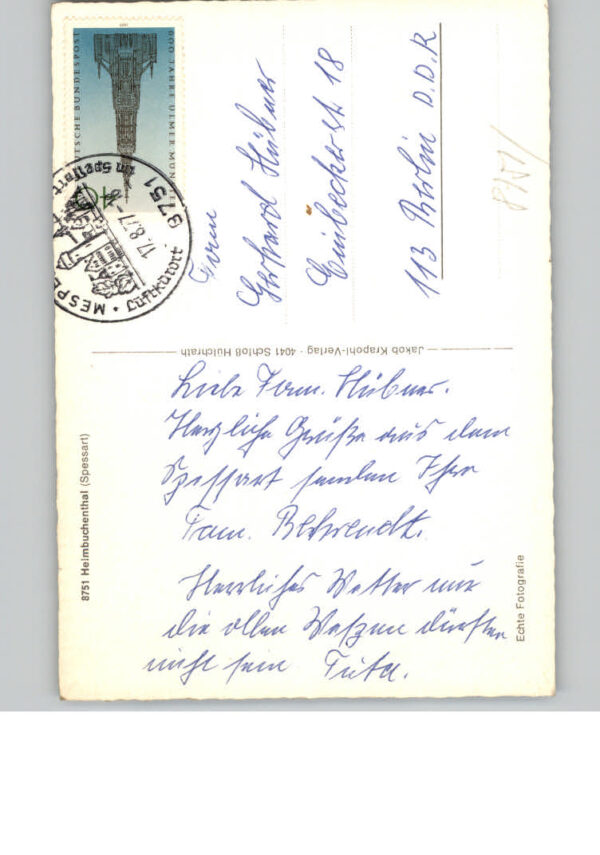 DEUTSCHE BUNDESPOST
600 JAHRE ULMER MÜNSTER
40
8751
MESPE
Luftkurort
im Spessart
17.8.77
Fam
Gerhard Hübner
Einbeckerst 18
113 Berlin D.D.R
8751
Jakob Krapohl-Verlag · 4041 Schloß Hülchrath
8751 Heimbuchenthal (Spessart)
Liebe Fam. Hübner.
Herzliche Grüße aus dem
Spessart senden Ihre
Fam. Behrendt.
Herrliches Wetter nur
die ollen Wespen dürften
nicht sein
Echte Fotografie